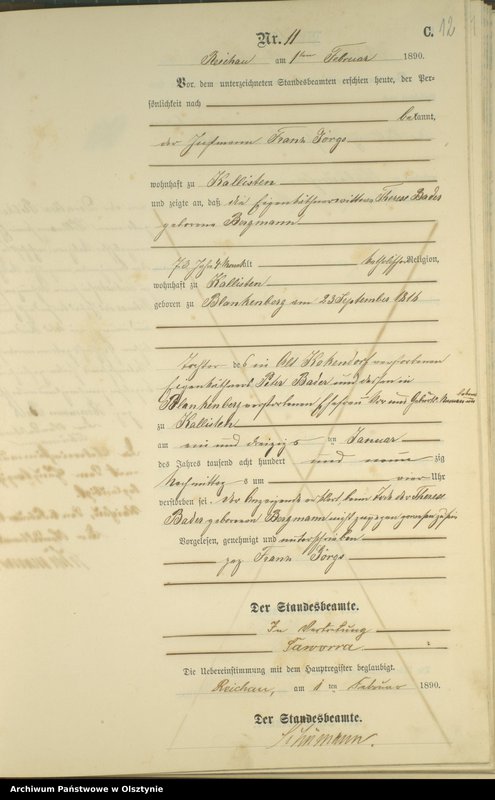 C. 12
Nr. 11
Reichau am 1ten Februar 1890.
Vor dem unterzeichneten Standesbeamten erschien heute, der Per-
sönlichkeit nach
bekannt,
der Franz Jörgs
wohnhaft zu Kallisten
und zeigte an, daß die Eigenkäthnerwittwe Therese Bader
geborene Bergmann
73 Jahr 4 Monat alt katholischer Religion,
wohnhaft zu Kallisten
geboren zu Blankenberg am 23 September 1816
Tochter des in Alt Kokendorf verstorbenen
Eigenkäthners Peter Bader und dessen in
Blankenberg verstorbenen Ehefrau Vor und Geburts
zu Kallisten
am ein und dreizigs ten Januar
des Jahres tausend acht hundert und neun zig
Nachmittag s um vier Uhr
verstorben sei, der Anzeigende beim Tode der Therese
Bader geborenen Bergmann nicht zugegen gewesen zu sein
Vorgelesen, genehmigt und unterschrieben
gez Franz Jörgs
Der Standesbeamte.
In Vertretung
Taworra.
Die Uebereinstimmung mit dem Hauptregister beglaubigt.
Reichau, am 1 ten Februar 1890.
Der Standesbeamte.
Archiwum Państwowe w Olsztynie